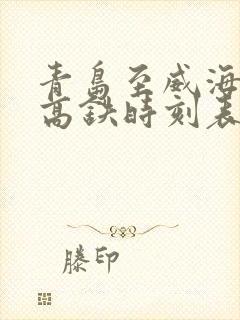 青島至威海
高鉄時刻表
滕印